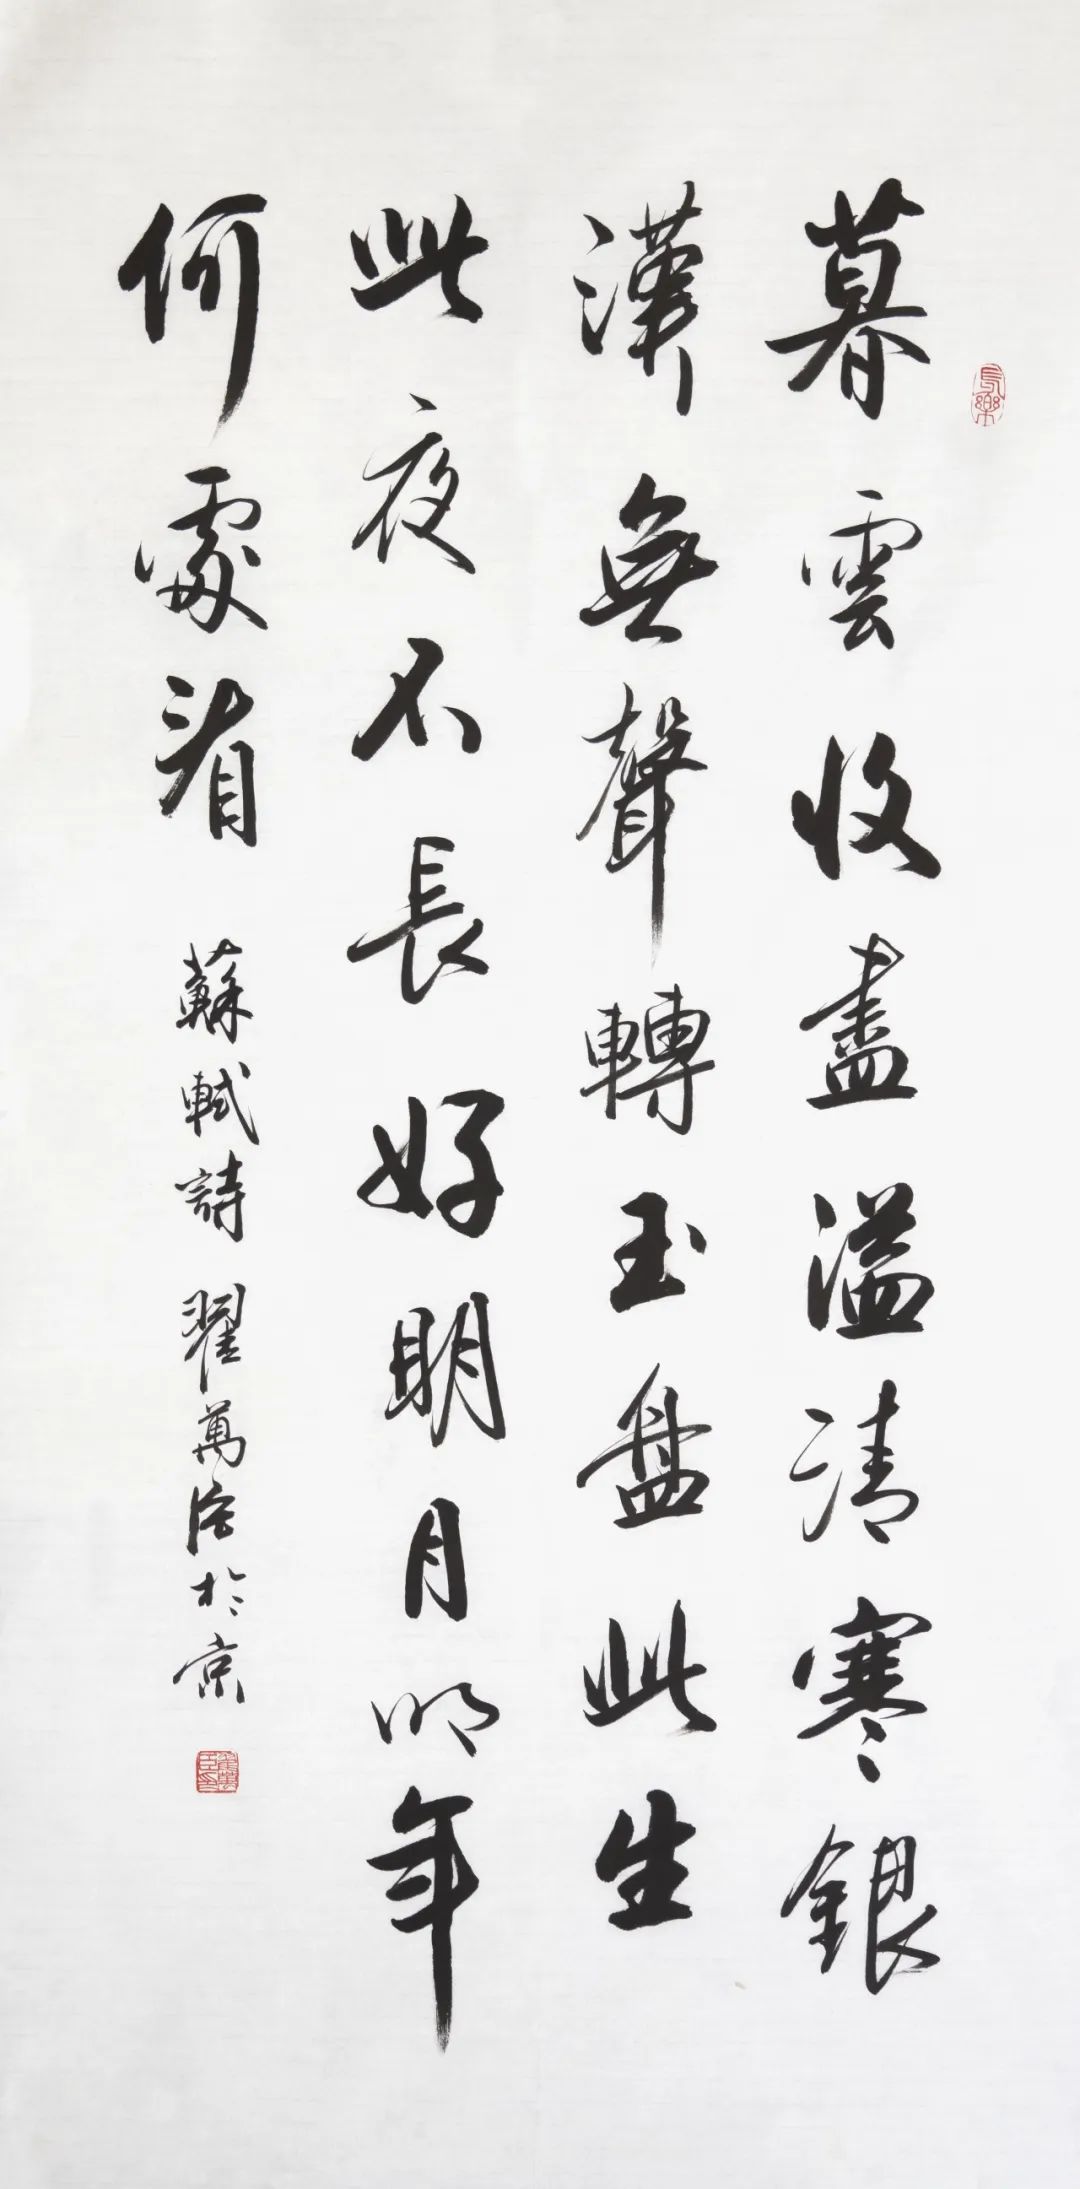 長樂
暮雲收盡溢清寒銀
漢無聲轉玉盤此生
此夜不長好明月明年
何處看
蘇軾詩 翟萬臣於京
翟萬臣印